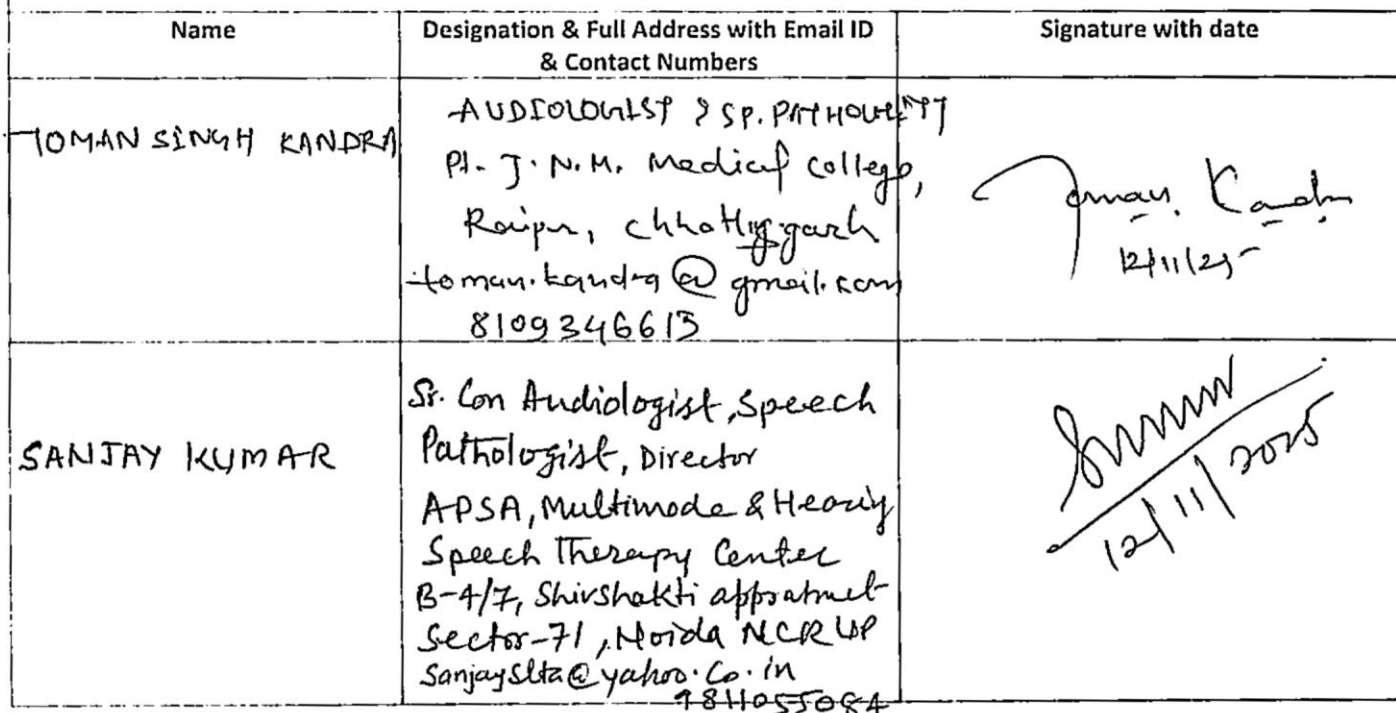 Name
Designation & Full Address with Email ID
& Contact Numbers
Signature with date
TOMAN SINGH KANDRA
AUDIOLOGIST & SP. PATHOLOGIST
Pt. J. N. M. Medical College,
Raipur, Chhattisgarh
toman.kandra@gmail.com
8109346615
Toman. Kandra
12/11/25
SANJAY KUMAR
Sr. Con Audiologist, Speech
Pathologist, Director
APSA, Multimode & Hearing
Speech Therapy Center
B-4/7, Shivshakti
Sector-71, Noida NCR UP
@yahoo.co.in
9811055084
12/11/2025